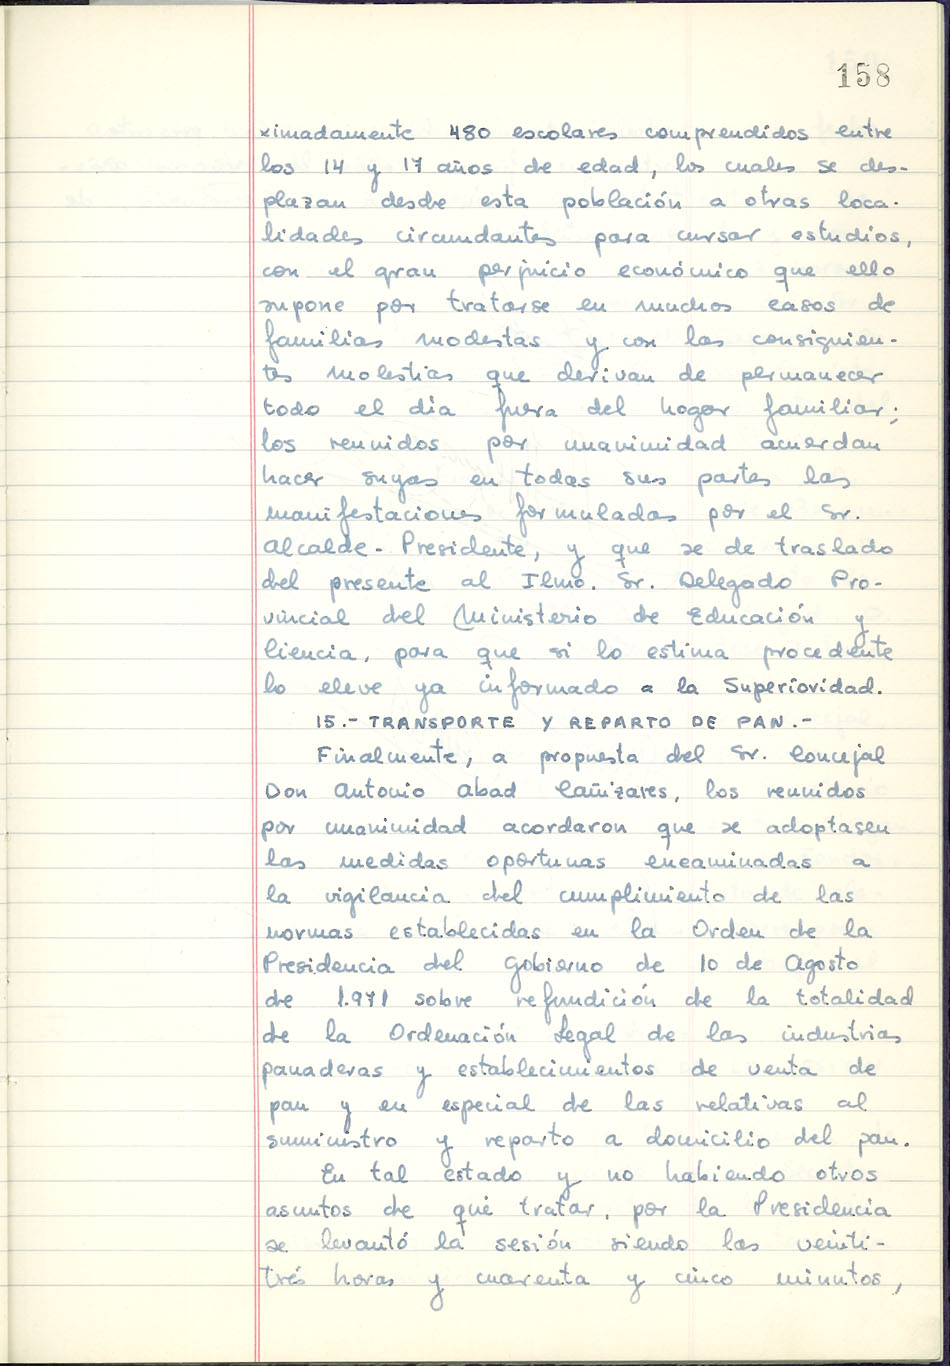 158
ximadamente 480 escolares comprendidos entre
los 14 y 17 años de edad, los cuales se des-
plazan desde esta población a otras loca-
lidades circundantes para cursar estudios,
con el gran perjuicio económico que ello
supone por tratarse en muchos casos de
familias modestas y con las consiguien-
tes molestias que derivan de permanecer
todo el día fuera del hogar familiar;
los reunidos por unanimidad acuerdan
hacer suyas en todas sus partes las
manifestaciones formuladas por el Sr.
Alcalde-Presidente, y que se de traslado
del presente al Ilmo. Sr. Delegado Pro-
vincial del Ministerio de Educación y
Ciencia, para que si lo estima procedente
lo eleve ya informado a la Superioridad.
15.- TRANSPORTE Y REPARTO DE PAN.-
Finalmente, a propuesta del Sr. Concejal
Don Antonio Abad Cañizares, los reunidos
por unanimidad acordaron que se adoptasen
las medidas oportunas encaminadas a
la vigilancia del cumplimiento de las
normas establecidas en la Orden de la
Presidencia del Gobierno de 10 de Agosto
de 1.971 sobre refundición de la totalidad
de la Ordenación Legal de las industrias
panaderas y establecimientos de venta de
pan y en especial de las relativas al
suministro y reparto a domicilio del pan.
En tal estado y no habiendo otros
asuntos de qué tratar, por la Presidencia
se levantó la sesión siendo las veinti-
trés horas y cuarenta y cinco minutos,